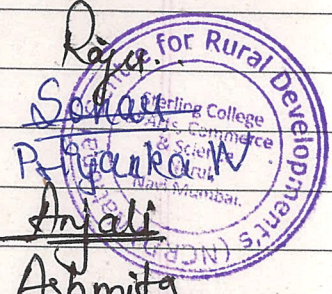 Raju.
Sonali
Priyanka.W
Anjali
Ashmita
Centre for Rural Development's (NCRD)
Sterling College
Arts, Commerce
& Science
Nerul,
Navi Mumbai.